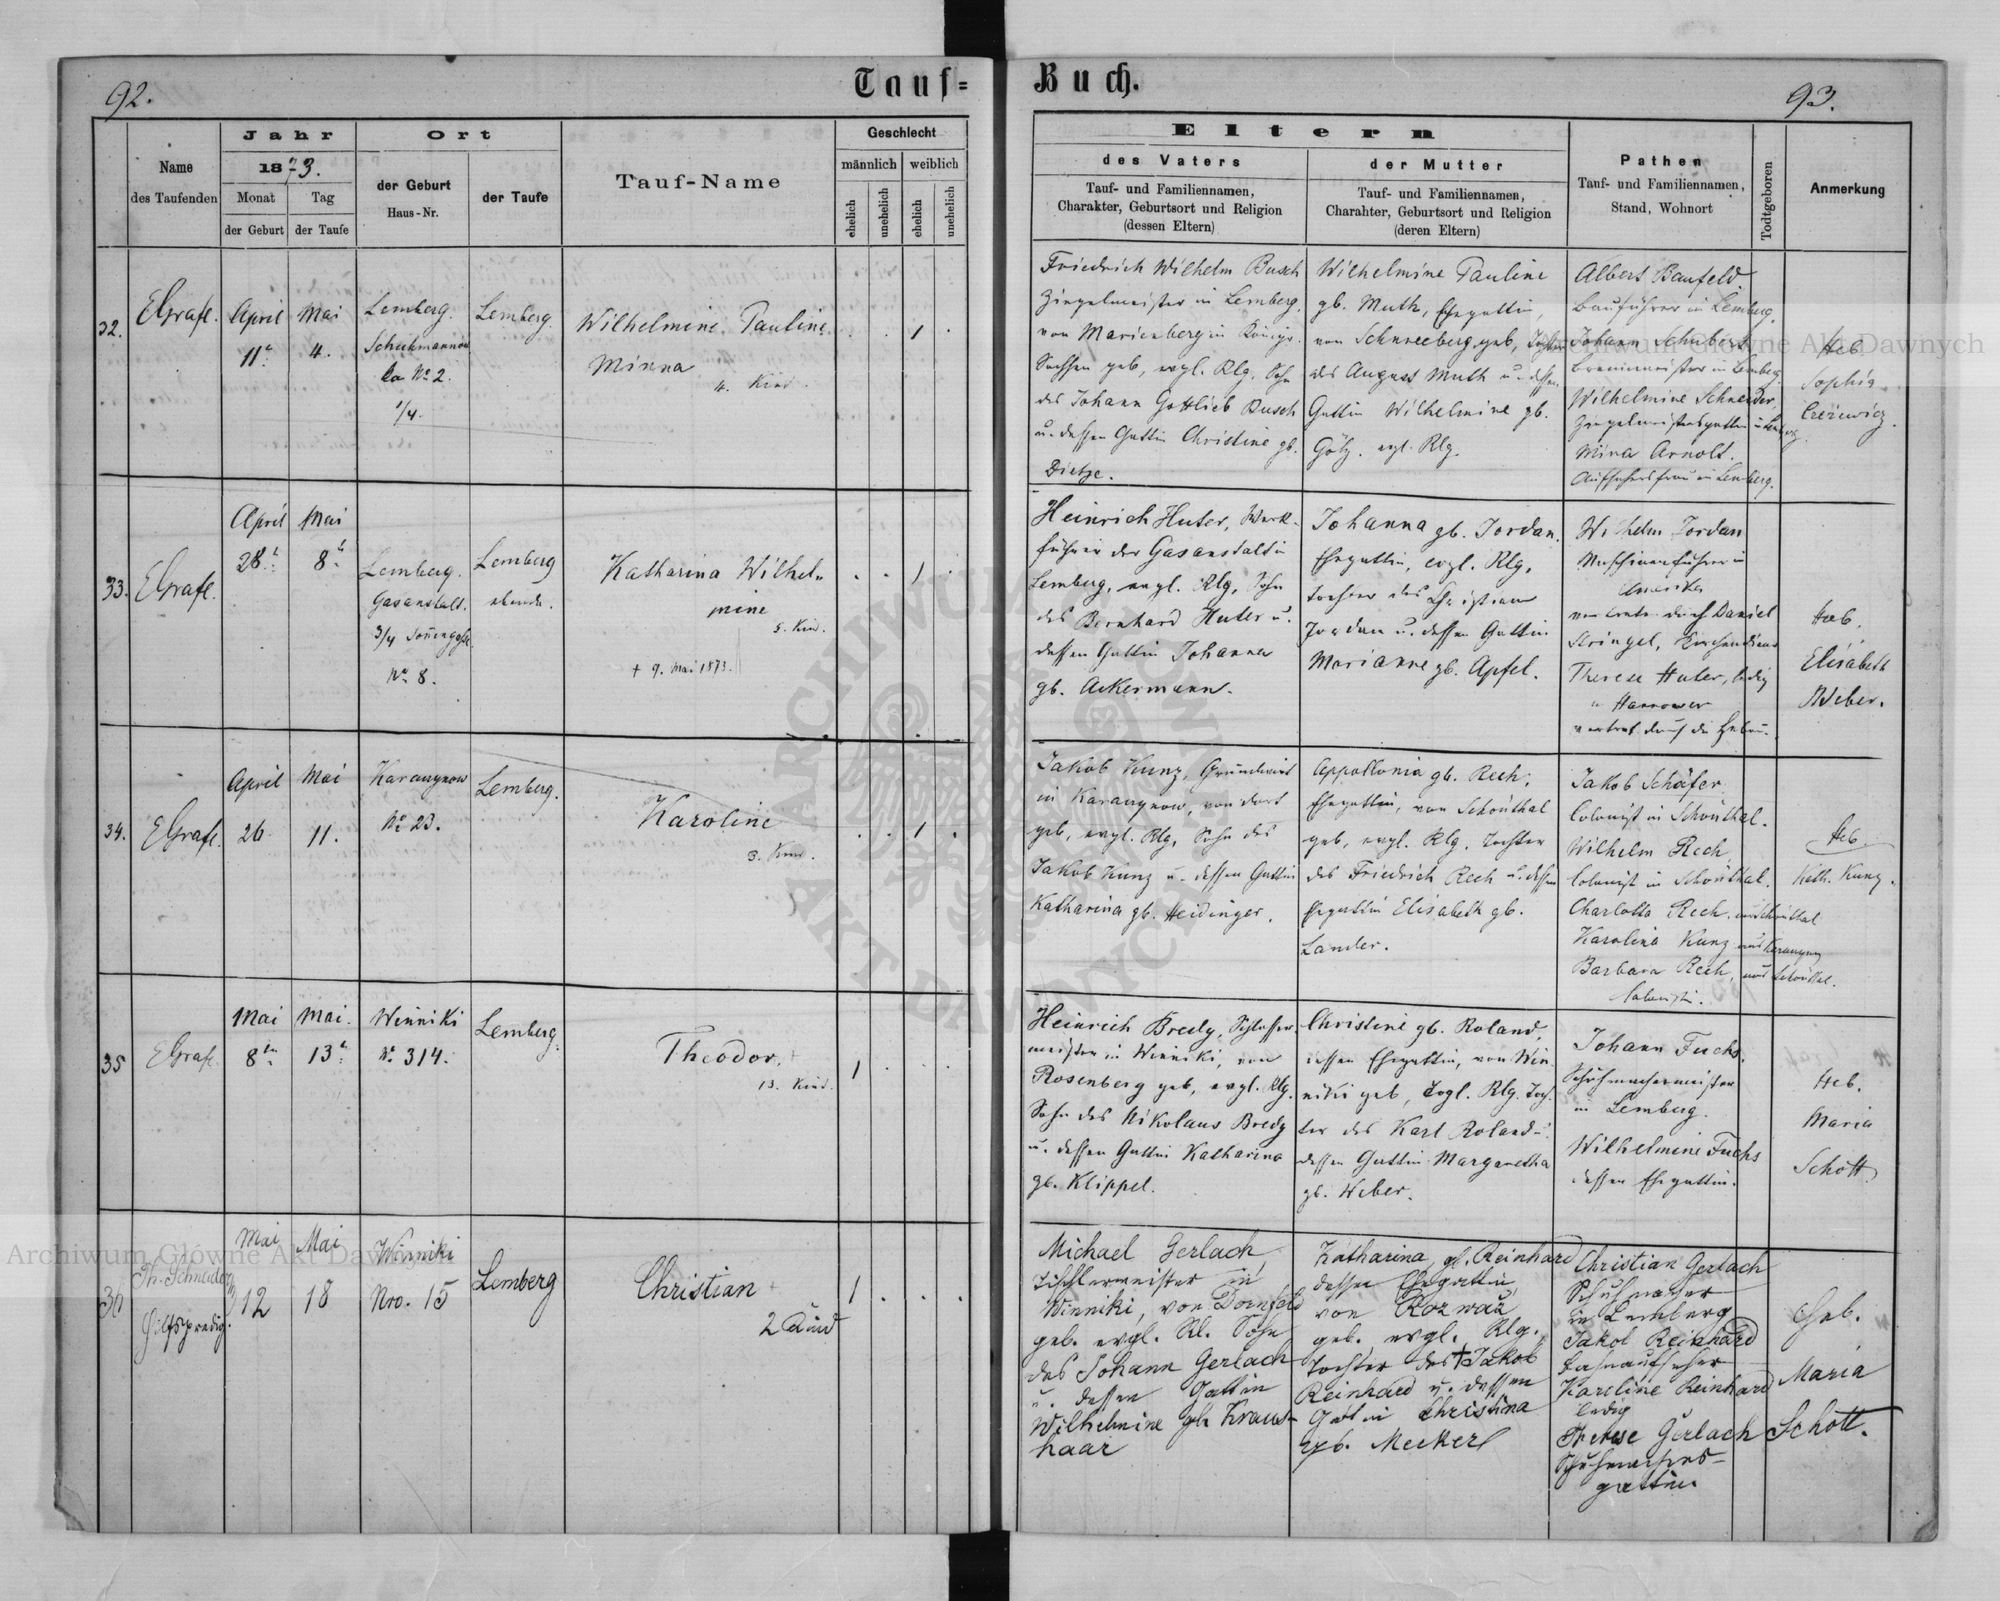 92.
Tauf=
Buch.
93.
Name
des Taufenden
Jahr
1873.
Monat
der Geburt
Tag
der Taufe
Ort
der Geburt
Haus-Nr.
der Taufe
Tauf-Name
Geschlecht
männlich
weiblich
ehelich
unehelich
ehelich
unehelich
Eltern
des Vaters
Tauf- und Familiennamen,
Charakter, Geburtsort und Religion
(dessen Eltern)
der Mutter
Tauf- und Familiennamen,
Charahter, Geburtsort und Religion
(deren Eltern)
Pathen
Tauf- und Familiennamen,
Stand, Wohnort
Todtgeboren
Anmerkung
32.
EGrafl.
April
11
Mai
4.
Lemberg.
No 2.
1/4.
Lemberg.
Wilhelmine Pauline
Minna
4. Kind.
1
Friedrich Wilhelm Busch
Ziegelmeister in Lemberg.
von Marienberg in Königr.
Sachsen geb, evgl. Rlg. Sohn
des Johann Gottlieb Busch
u. dessen Gattin Christine gb.
Dietze.
Wilhelmine Pauline
gb. Muth, Ehegattin,
von Schneeberg geb, Tochter
des August Muth u. dessen
Gattin Wilhelmine gb.
Götz. evgl. Rlg.
Albert Baufeld
Bauführer in Lemberg.
Johann Schubert
Brennmeister in Lemberg.
Wilhelmine Schneider,
Ziegelmeistersgattin in Lemberg.
Mina Arnolt.
Aufsehersfrau in Lemberg.
Heb.
Sophia
33.
EGrafl.
April
28
Mai
8
Lemberg.
Gasanstalt.
3/4
No 8.
Lemberg
Katharina Wilhel-
mine
5. Kind.
+ 9. Mai 1873.
1
Heinrich Huter, Werk-
führer der Gasanstalt in
Lemberg, evgl. Rlg, Sohn
des Bernhard Huter u.
dessen Gattin Johanna
gb. Ackermann.
Johanna gb. Jordan.
Ehegattin, evgl. Rlg.
Tochter des Christian
Jordan u. dessen Gattin
Marianne gb. Apfel.
Wilhelm Jordan
Maschinenführer in
Amerika
durch Daniel
Stringel, Kirchendiener
Therese Huter, ledig
in Hannover
vertret. durch die
Heb.
Elisabeth
Weber.
34.
EGrafl.
April
26.
Mai
11.
Karaczynow
No 23.
Lemberg.
Karoline
3. Kind.
1
Jakob Kunz, Grundwirt
in Karaczynow, von dort
geb, evgl. Rlg, Sohn des
Jakob Kunz u. dessen Gattin
Katharina gb. Heidinger.
Appollonia gb. Rech,
Ehegattin, von Schönthal
geb, evgl. Rlg. Tochter
des Friedrich Rech u. dessen
Ehegattin Elisabeth gb.
Lander.
Jakob Schäfer,
Colonist in Schönthal.
Wilhelm Rech
Colonist in Schönthal.
Charlotte Rech. aus Schönthal
Karolina Kunz aus Karaczynow
Barbara Rech, aus Schönthal.
Heb.
Kath. Kunz.
35
EGrafl.
Mai
8
Mai.
13
Winniki
No 314.
Lemberg.
Theodor.
13. Kind.
1
Heinrich Bredy, Schlosser-
meister in Winniki, von
Rosenberg geb, evgl. Rlg.
Sohn des Nikolaus Bredy
u. dessen Gattin Katharina
gb. Klippel.
Christine gb. Roland,
dessen Ehegattin, von Win-
niki geb, evgl. Rlg. Toch-
ter des Karl Roland u.
dessen Gattin Margaretha
gb. Weber.
Johann Fuchs.
Schuhmachermeister
in Lemberg.
Wilhelmine Fuchs
dessen Ehegattin.
Heb.
Maria
Schott.
36
Th. Schneider
Hilfspredig.
Mai
12
Mai
18
Winniki
Nro. 15
Lemberg
Christian
2 Kind
1
Michael Gerlach,
Tischlermeister in
Winniki, von Dornfeld
geb. evgl. Rl. Sohn
des Johann Gerlach
u. dessen Gattin
Wilhelmine gb. Kraus-
haar
Katharina gb. Reinhard
dessen Ehegattin,
von
geb. evgl. Rlg.,
Tochter des + Jakob
Reinhard u. dessen
Gattin Christina
geb. Meckerl
Christian Gerlach
Schuhmacher
in Lemberg
Jakob Reinhard
Bahnaufseher
Karoline Reinhard
ledig
Therese Gerlach
Schuhmachers-
gattin
Heb.
Maria
Schott.
Archiwum Główne Akt Dawnych
Archiwum Główne Akt Dawnych
ARCHIWUM GŁÓWNE AKT DAWNYCH